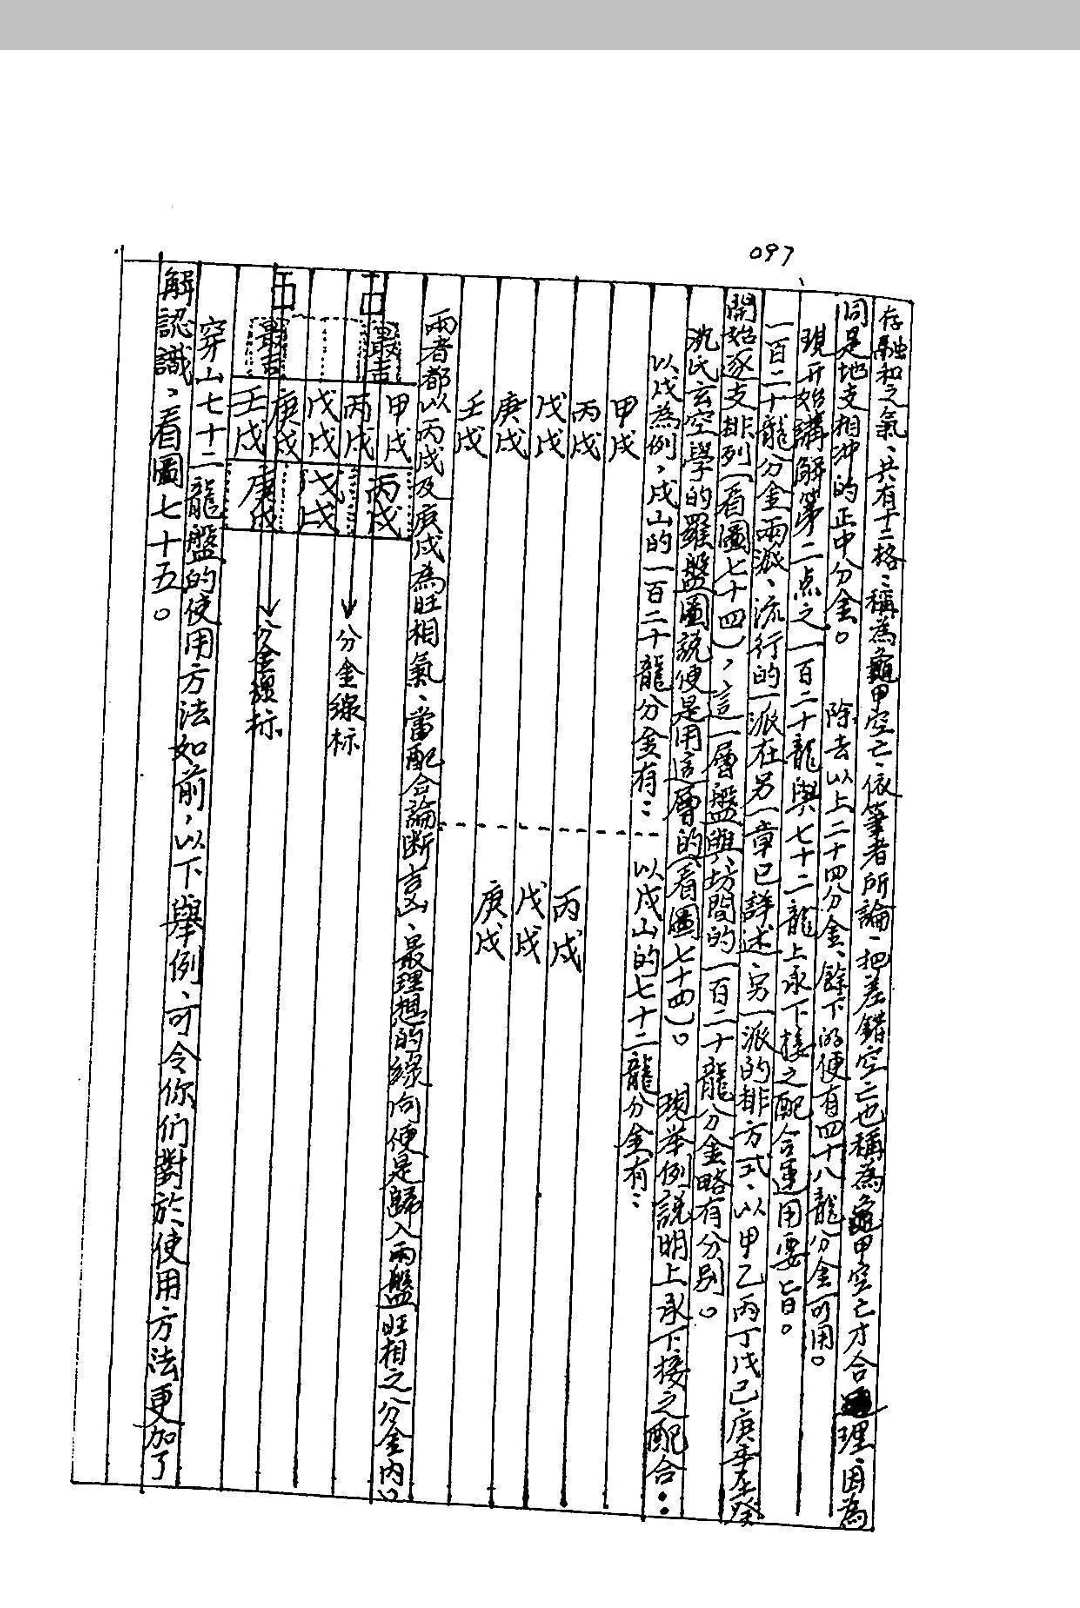 097
存融和之氣、共有十二格、稱為龜甲空亡、依筆者所論、把差錯空亡也稱為龜甲空亡才合理、因為
同是地支相沖的正中分金。 除去以上二十四分金、餘下的便有四十八龍分金可用。
現開始講解第二点之一百二十龍與七十二龍上承下接之配合運用要旨。
一百二十龍分金兩派、流行的一派在另一章已詳述、另一派的排方式、以甲乙丙丁戊己庚辛壬癸
開始逐支排列(看圖七十四)，這一層盤與坊間的一百二十龍分金略有分別。
沈氏玄空學的羅盤圖説便是用這層的(看圖七十四)。 現举例説明上承下接之配合：
以戌為例，戌山的一百二十龍分金有： 以戌山的七十二龍分金有：
甲戌
丙戌 丙戌
戊戌 戊戌
庚戌 庚戌
壬戌
兩者都以丙戌及庚戌為旺相氣、當配合論斷吉凶、最理想的綫向便是歸入兩盤旺相之分金內。
最吉 最吉
甲戌 丙戌 戊戌 庚戌 壬戌
丙戌 戊戌 庚戌
分金線标
分金線标
穿山七十二龍盤的使用方法如前，以下舉例、可令你们對於使用方法更加了
解認識、看圖七十五。